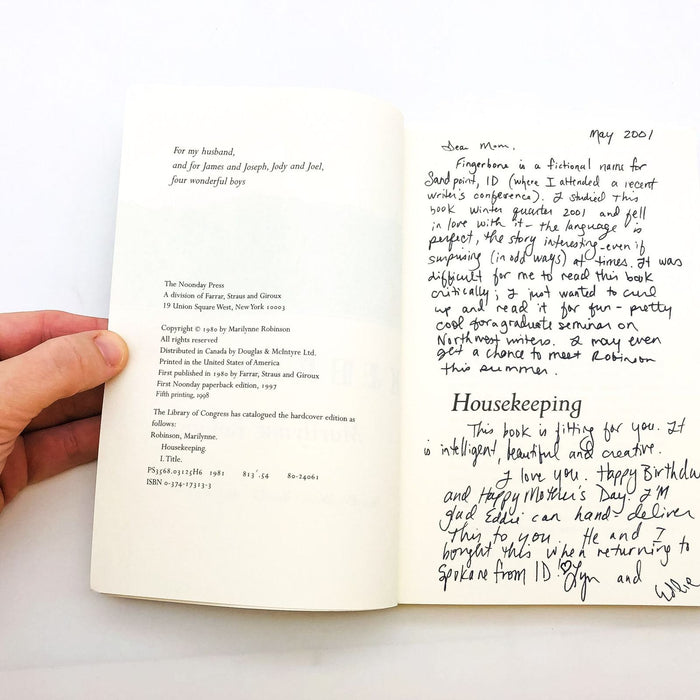 For my husband,
and for James and Joseph, Jody and Joel,
four wonderful boys
The Noonday Press
A division of Farrar, Straus and Giroux
19 Union Square West, New York 10003
Copyright © 1980 by Marilynne Robinson
All rights reserved
Distributed in Canada by Douglas & McIntyre Ltd.
Printed in the United States of America
First published in 1980 by Farrar, Straus and Giroux
First Noonday paperback edition, 1997
Fifth printing, 1998
The Library of Congress has catalogued the hardcover edition as
follows:
Robinson, Marilynne.
Housekeeping.
I. Title.
PS3568.03125H6 1981 813'.54 80-24061
ISBN 0-374-17313-3
May 2001
Dear Mom,
Fingerbone is a fictional name for
Sandpoint, ID (where I attended a recent
writer's conference). I studied this
book winter quarter 2001 and fell
in love with it - the language is
perfect, the story interesting - even if
surprising (in odd ways) at times. It was
difficult for me to read this book
critically; I just wanted to curl
up and read it for fun - pretty
cool for a graduate seminar on
Northwest writers. I may even
get a chance to meet Robinson
this summer.
Housekeeping
This book is fitting for you. It
is intelligent, beautiful and creative.
I love you. Happy Birthday
and Happy Mother's Day. I'm
glad Eddie can hand-deliver
this to you. He and I
bought this when returning to
Spokane from ID! ♡ Lyn and